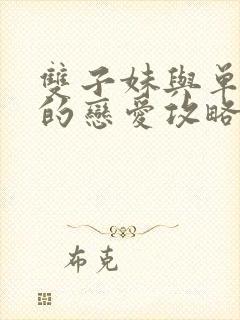 雙子妹與單
的戀愛攻略
布克